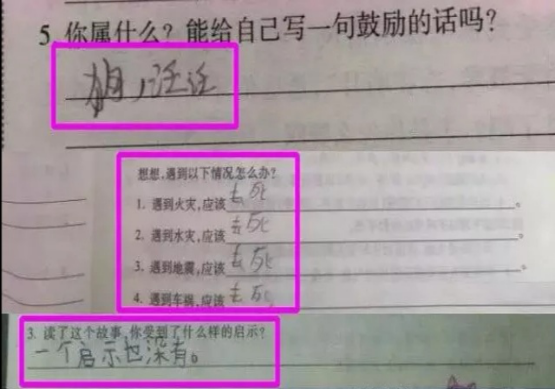 5. 你属什么？能给自己写一句鼓励的话吗？
想想，遇到以下情况怎么办？
1. 遇到火灾，应该去死。
2. 遇到水灾，应该去死。
3. 遇到地震，应该去死。
4. 遇到车祸，应该去死。
3. 读了这个故事，你受到了什么样的启示？
一个启示也深有。